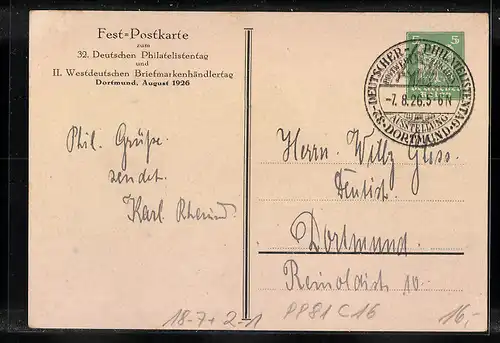 Fest=Postkarte
zum
32. Deutschen Philatelistentag
und
II. Westdeutschen Briefmarkenhändlertag
Dortmund, August 1926
Phil. Grüße
sendet
Karl
5
DEUTSCHER PHILATELISTENTAG
-7.8.26.5-6N
AUSSTELLUNG
32. DORTMUND
Herrn Willy
Dentist.
Dortmund
Reinoldistr 10.
18-7+2-1
PP81 C16
16,-